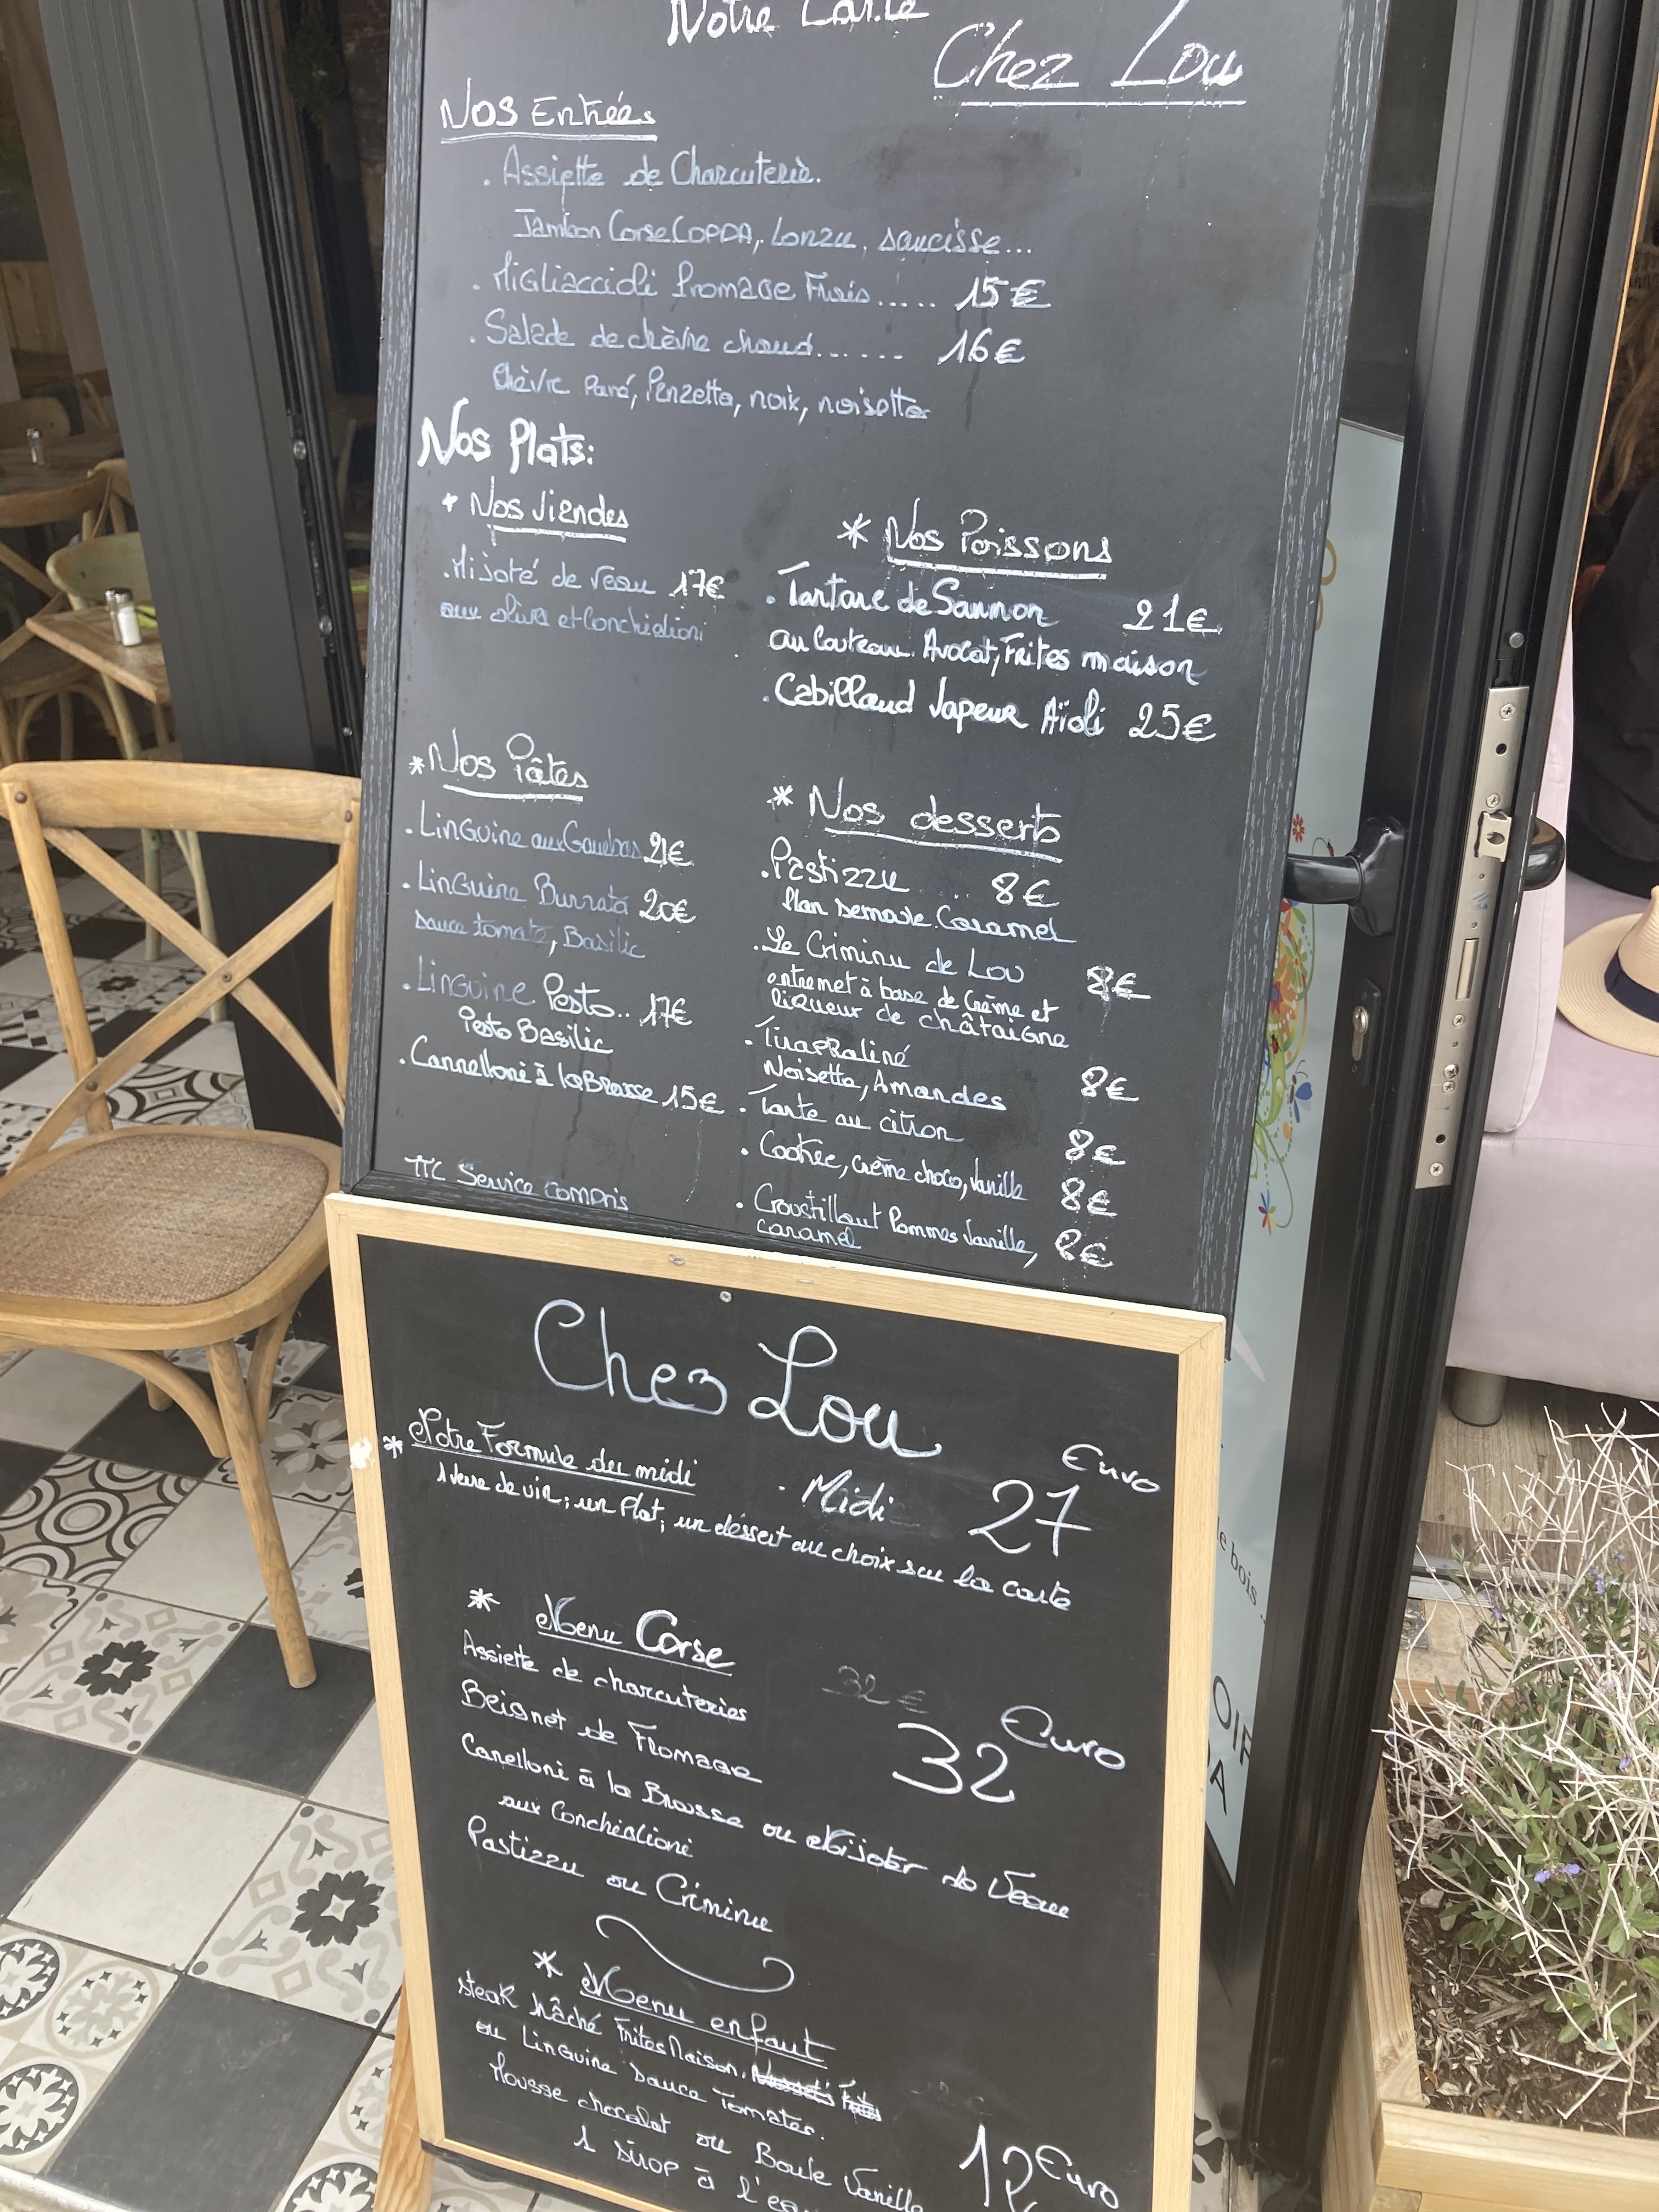 Notre Carte
Chez Lou
Nos Entrées
. Assiette de Charcuterie.
Jambon Corse COPPA, Lonzu, saucisse...
. Migliaccioli fromage Frais..... 15€
. Salade de chèvre chaud...... 16€
Chèvre Pané, Penzetta, noix, noisette
Nos Plats:
* Nos Viandes
. Mijoté de Veau 17€
aux olives et Conchiglioni
* Nos Poissons
. Tartare de Saumon 21€
au Couteau. Avocat, Frites maison
. Cabillaud Vapeur Aïoli 25€
* Nos Pâtes
. Linguine aux Gambas 21€
. Linguine Burrata 20€
sauce tomate, Basilic
. Linguine Pesto.. 17€
Pesto Basilic
. Cannelloni à la Brousse 15€
TTC Service compris
* Nos desserts
. Pastizzu ... 8€
flan semoule Caramel
. Le Criminu de Lou 8€
entremet à base de Crème et
liqueur de châtaigne
. Tirapraliné
Noisette, Amandes 8€
. Tarte au citron 8€
. Cookie, crème choco, vanille 8€
. Croustillant Pommes Vanille, 8€
caramel
Chez Lou
* Notre Formule du midi . Midi 27 Euro
1 verre de vin; un plat; un déssert au choix sur la carte
* Menu Corse
32€
32 Euro
Assiette de charcuteries
Beignet de Fromage
Canelloni à la Brousse ou Mijoter de Veau
aux Conchiglioni
Pastizzu ou Criminu
* Menu enfant
steak hâché Frites Maison.
ou Linguine Sauce Tomates.
Mousse chocolat ou Boule Vanille
1 sirop à l'eau
12 Euro
le bois
OIR